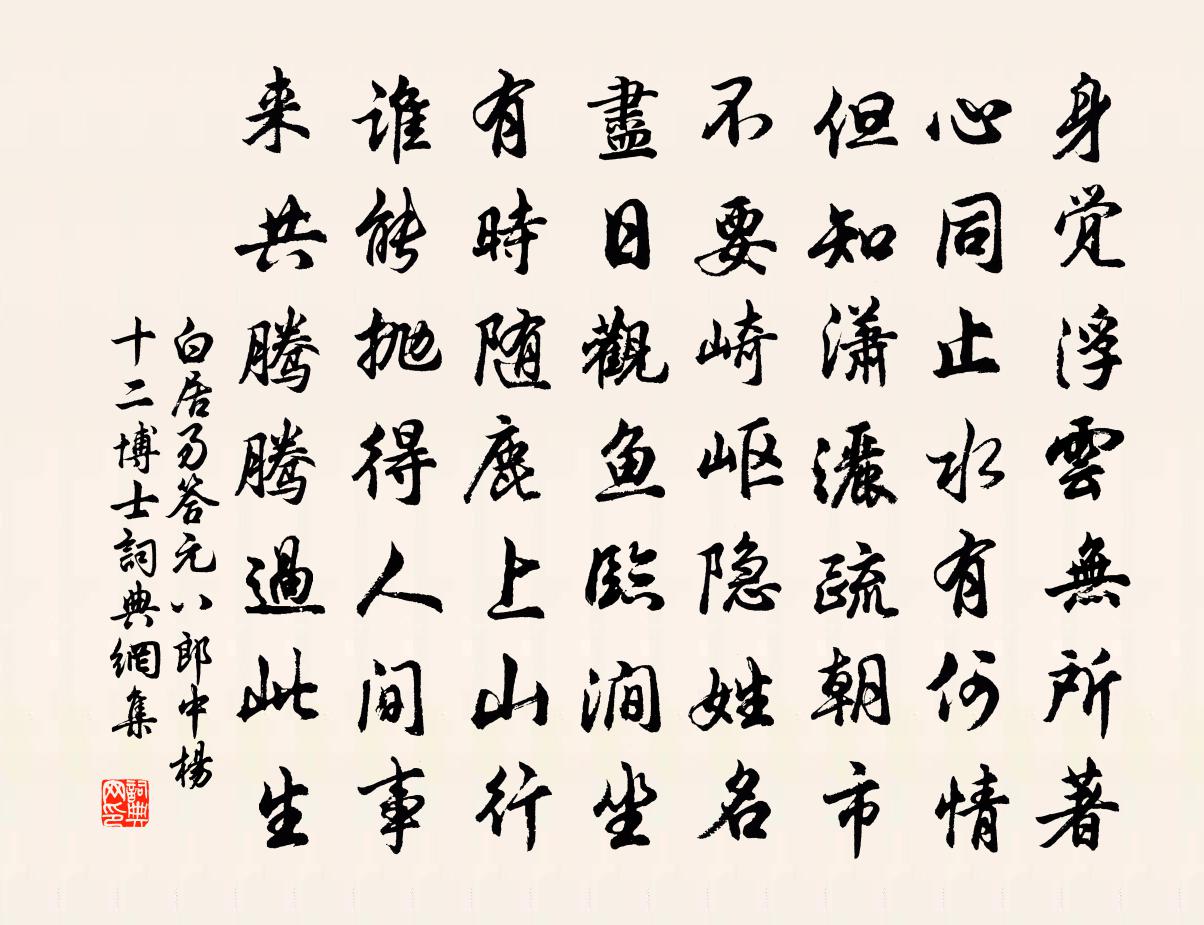 身觉浮雲無所著
心同止水有何情
但知潇灑疏朝市
不要崎岖隐姓名
盡日觀鱼臨澗坐
有時随鹿上山行
谁能抛得人间事
来共腾腾過此生
白居易答元八郎中楊
十二博士詞典網集
詞典
网印